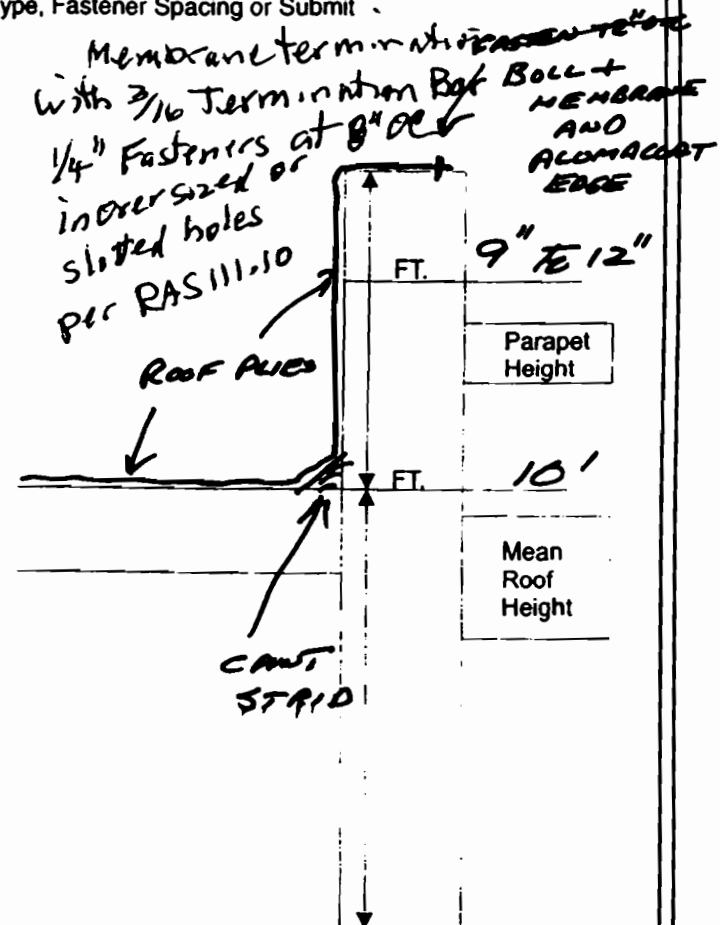 ype, Fastener Spacing or Submit
Membrane termination
with 3/16 Termination Bar
1/4" Fasteners at 8" OC
in oversized or
slotted holes
per RAS 111.10
MEMBRANE
AND
EDGE
FT. 9" TO 12"
Parapet
Height
ROOF PLIES
FT. 10'
Mean
Roof
Height
CANT
STRIP